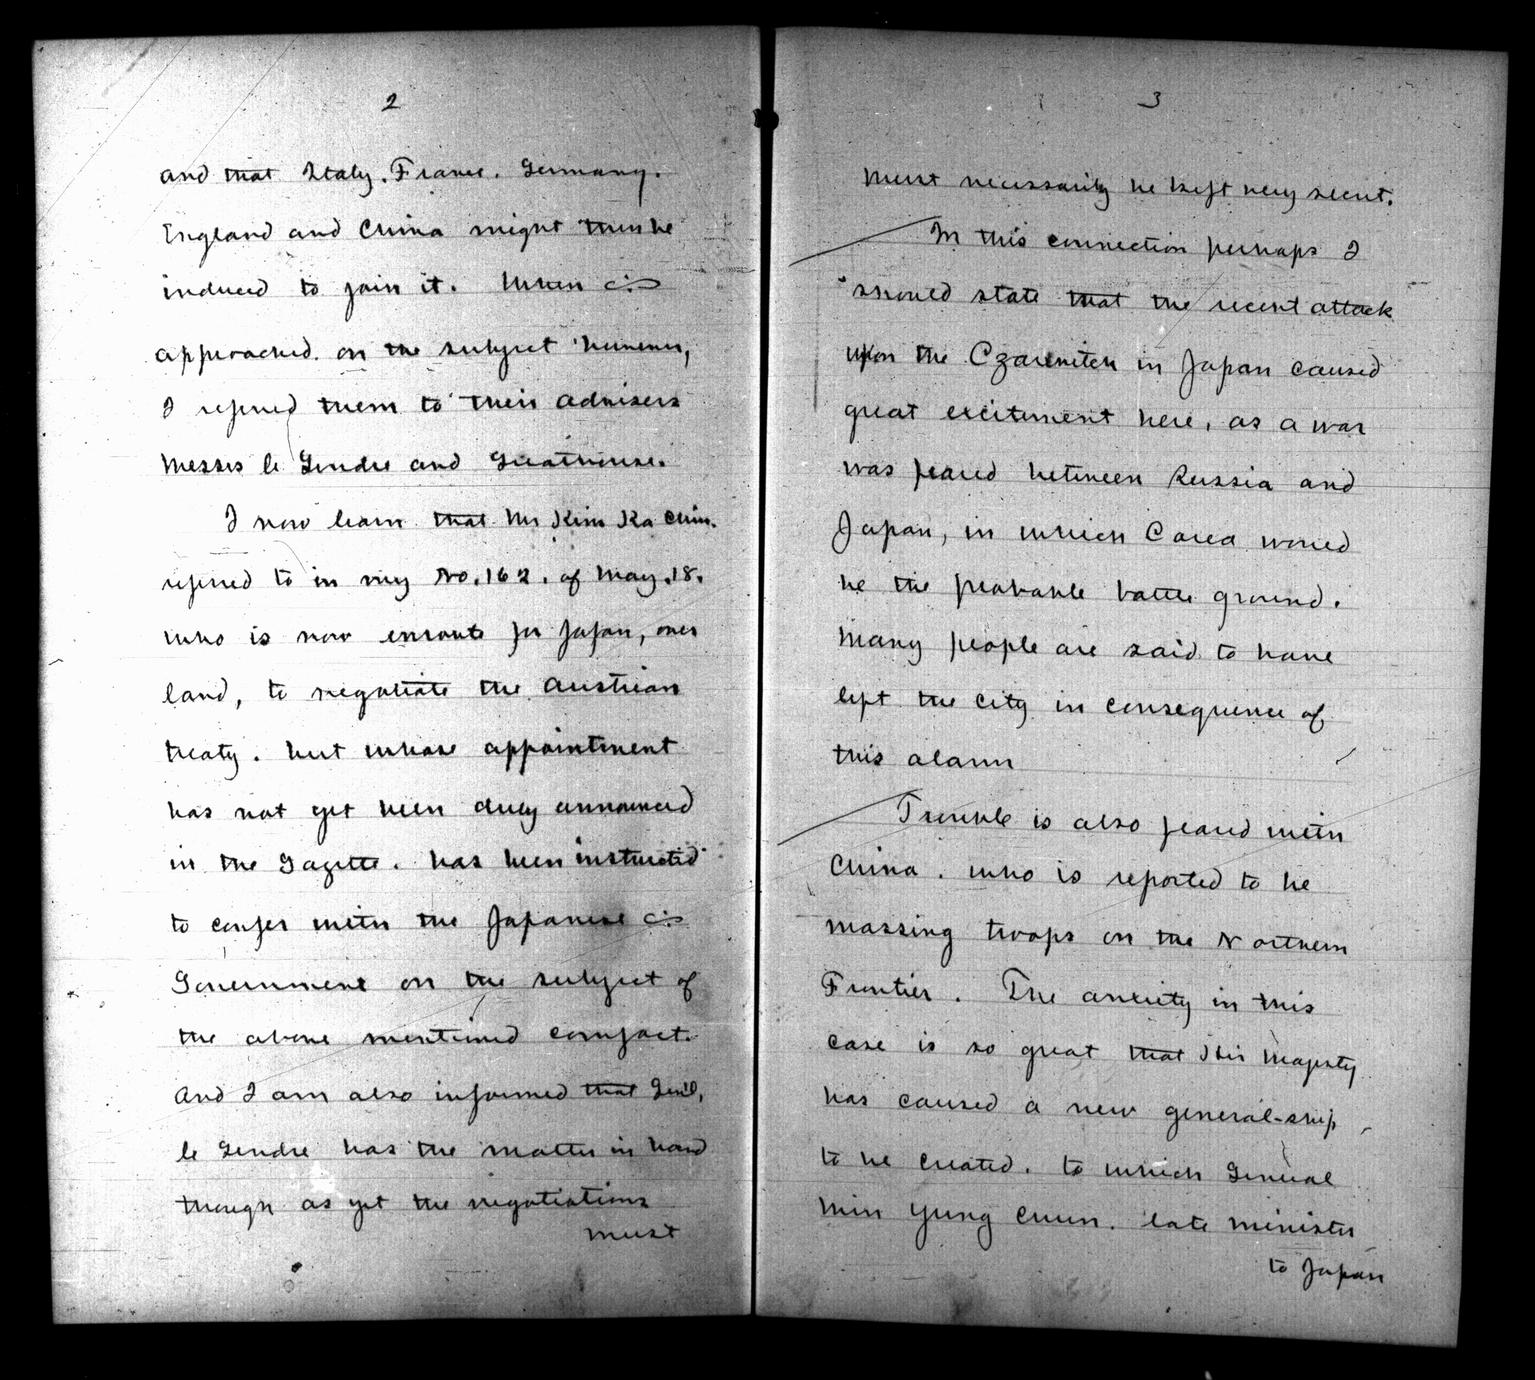 2
and that Italy. France. Germany.
England and China might then be
induced to join it. When
approached on the subject however,
I refered them to their advisers
Messrs le Gendre and Greathouse.
I now learn that Mr Kim Ka Chin.
refered to in my No. 162. of May. 18.
who is now enroute for Japan, over
land, to negotiate the Austrian
treaty. but whose appointment
has not yet been duly announced
in the Gazette. has been instructed
to confer with the Japanese
Government on the subject of
the above mentioned compact.
And I am also informed that Gen'l,
le Gendre has the matter in hand
though as yet the negotiations
must
3
must necessarily be kept very secret.
In this connection perhaps I
should state that the recent attack
upon the Czarewitch in Japan caused
great excitement here, as a war
was feared between Russia and
Japan, in which Corea would
be the probable battle ground.
Many people are said to have
left the city in consequence of
this alarm
Trouble is also feared with
China. who is reported to be
massing troops on the Northern
Frontier. The anxiety in this
case is so great that His Majesty
has caused a new general-ship
to be created. to which General
Min Yung Chun. late minister
to Japan